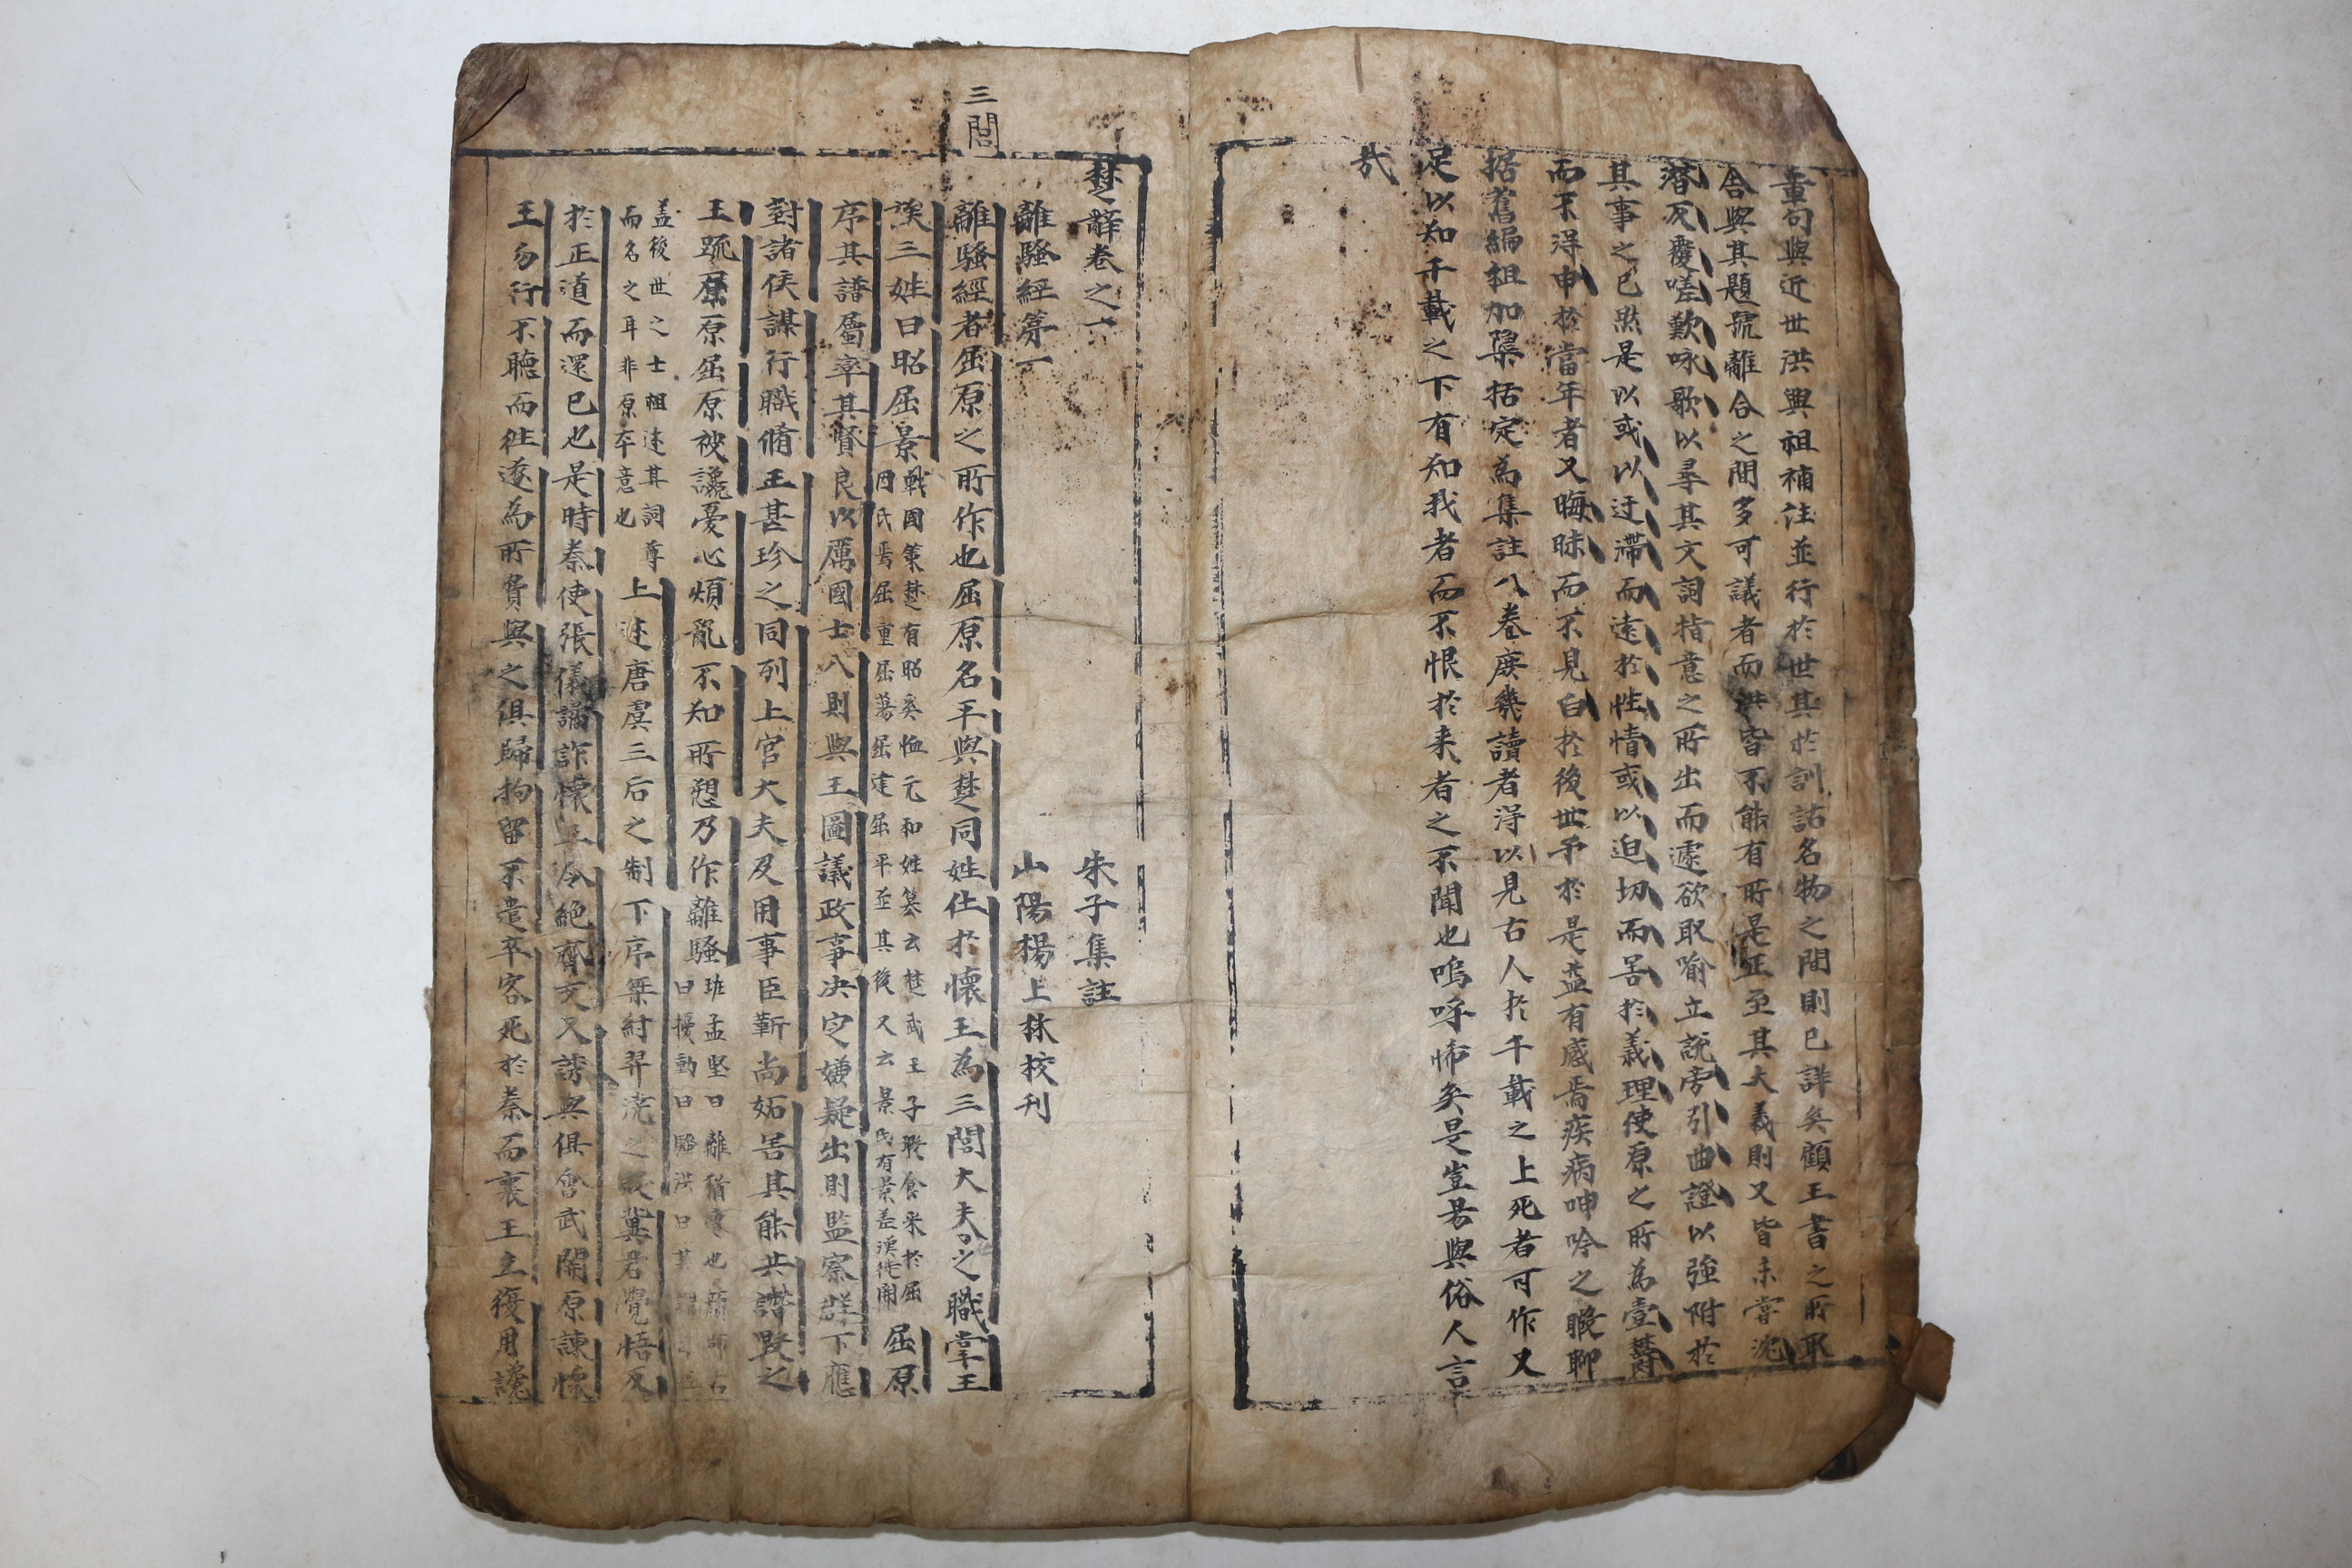 章句與近世洪興祖補注並行於世其於訓詁名物之間則已詳矣顧王書之所取
舎與其題號離合之間多可議者而洪皆不能有所是正至其大義則又皆未甞沈
潛反覆嗟歎咏歌以尋其文詞指意之所出而遽欲取喻立說旁引曲證以強附於
其事之已然是以或以迂滯而遠於性情或以迫切而害於義理使原之所為壹鬱
而不得申於當年者又晦昧而不見白於後世予於是益有感焉疾病呻吟之暇聊
据舊編粗加檃栝定為集註八卷庻幾讀者得以見古人於千載之上死者可作又
足以知千載之下有知我者而不恨於来者之不聞也嗚呼悕矣是豈易與俗人言
㢤
三閭
楚辭卷之一
朱子集註
離騷經第一
山陽楊上林校刊
離騷經者屈原之所作也屈原名平與楚同姓仕於懷王為三閭大夫之職掌王
族三姓曰昭屈景戰國策楚有昭奚恤元和姓纂云楚武王子瑕食采於屈
因氏焉屈重屈蕩屈建屈平並其後又云景氏有景差漢徙關屈原
序其譜屬率其賢良以厲國士入則與王圖議政事决定嫌疑出則監察群下應
對諸侯謀行職脩王甚珍之同列上官大夫及用事臣靳尚妬害其能共譖毀之
王䟽屈原屈原被讒憂心煩亂不知所愬乃作離騷班孟堅曰離猶遭也
曰擾動曰騷洪曰其
盖後世之士祖述其詞尊
而名之耳非原夲意也上述唐虞三后之制下序桀紂羿澆之敗冀君覺悟反
於正道而還已也是時秦使張儀譎詐懷王令絶齊交又誘與俱㑹武關原諫懷
王勿行不聽而徃遂為所脅與之俱歸拘留不遣卒客死於秦而襄王立復用讒